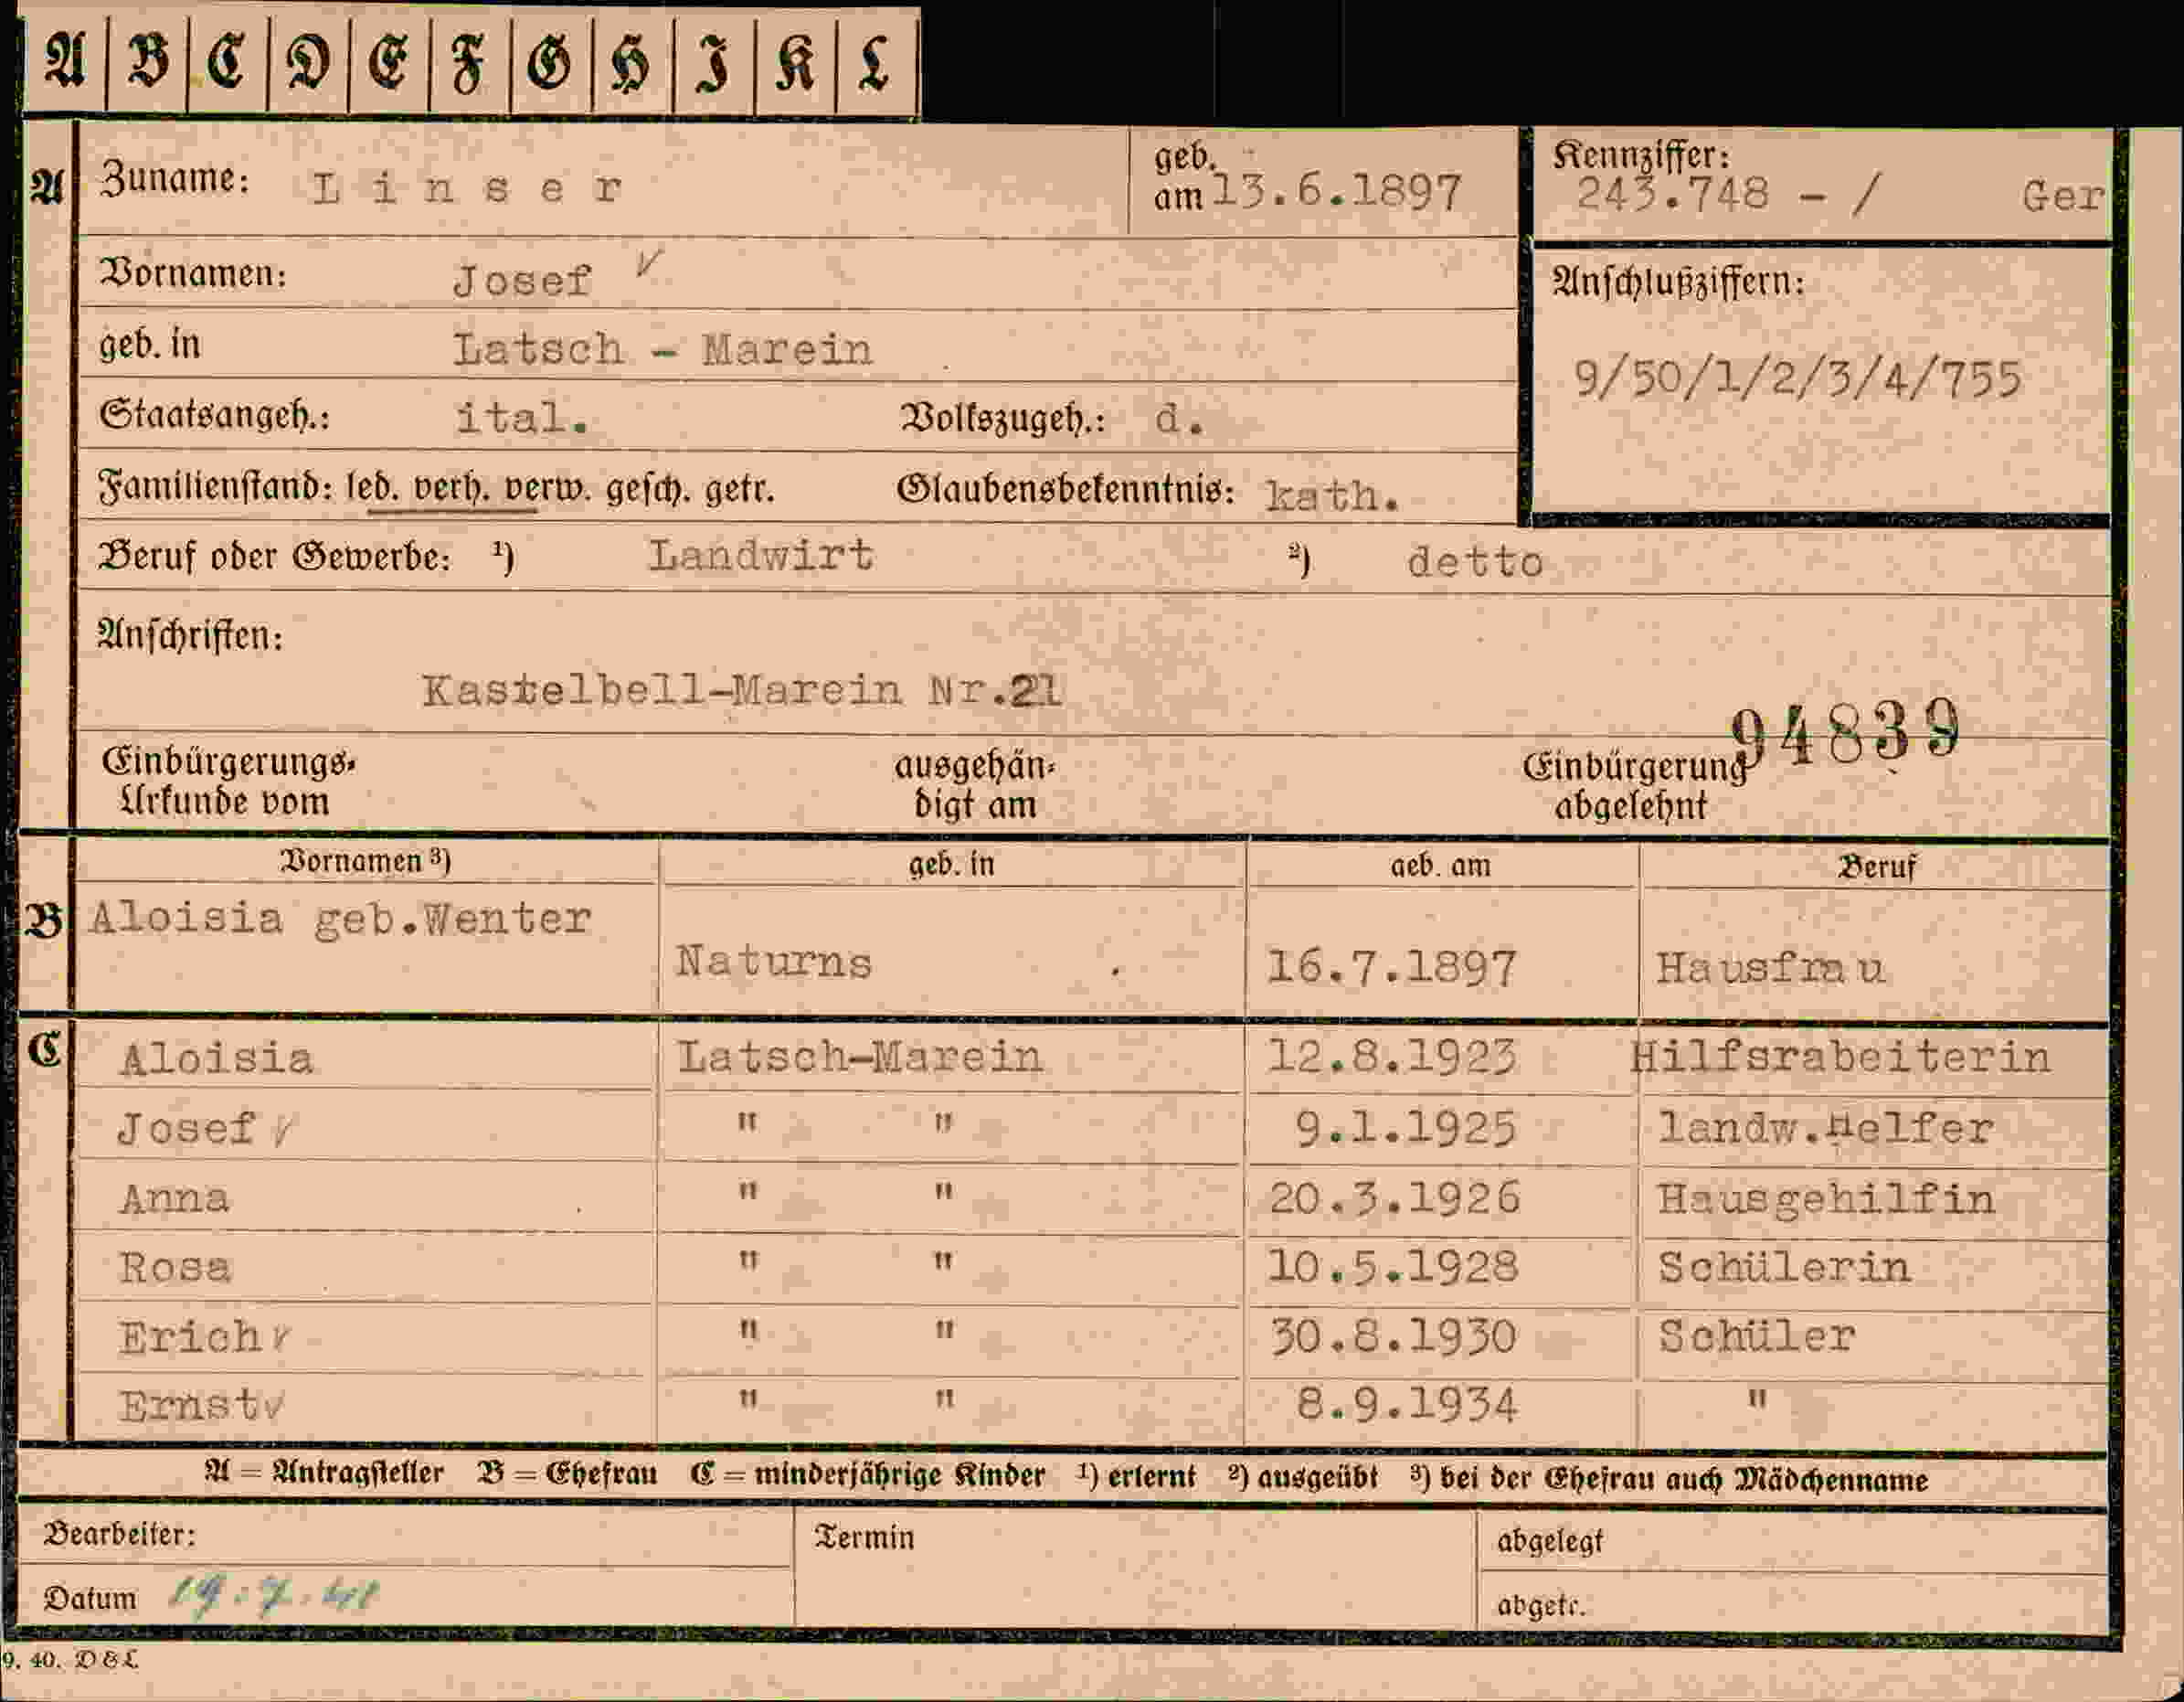 A B C D E F G H I K L
A Zuname: Linser geb. am 13.6.1897 Kennziffer: 243.748 - / Ger
Vornamen: Josef Anschlußziffern:
geb. in Latsch - Marein 9/50/1/2/3/4/755
Staatsangeh.: ital. Volkszugeh.: d.
Familienstand: led. verh. verw. gesch. getr. Glaubensbekenntnis: kath.
Beruf oder Gewerbe: 1) Landwirt 2) detto
Anschriften:
Kastelbell-Marein Nr.21
94839
Einbürgerungs- ausgehän- Einbürgerung
Urkunde vom digt am abgelehnt
Vornamen 3) geb. in geb. am Beruf
B Aloisia geb.Wenter
Naturns 16.7.1897 Hausfrau
C Aloisia Latsch-Marein 12.8.1923 Hilfsrabeiterin
Josef " " 9.1.1925 landw.Helfer
Anna " " 20.3.1926 Hausgehilfin
Rosa " " 10.5.1928 Schülerin
Erich " " 30.8.1930 Schüler
Ernst " " 8.9.1934 "
A = Antragsteller B = Ehefrau C = minderjährige Kinder 1) erlernt 2) ausgeübt 3) bei der Ehefrau auch Mädchenname
Bearbeiter: Termin abgelegt
Datum 19.7.41 abgetr.
9. 40. D & L